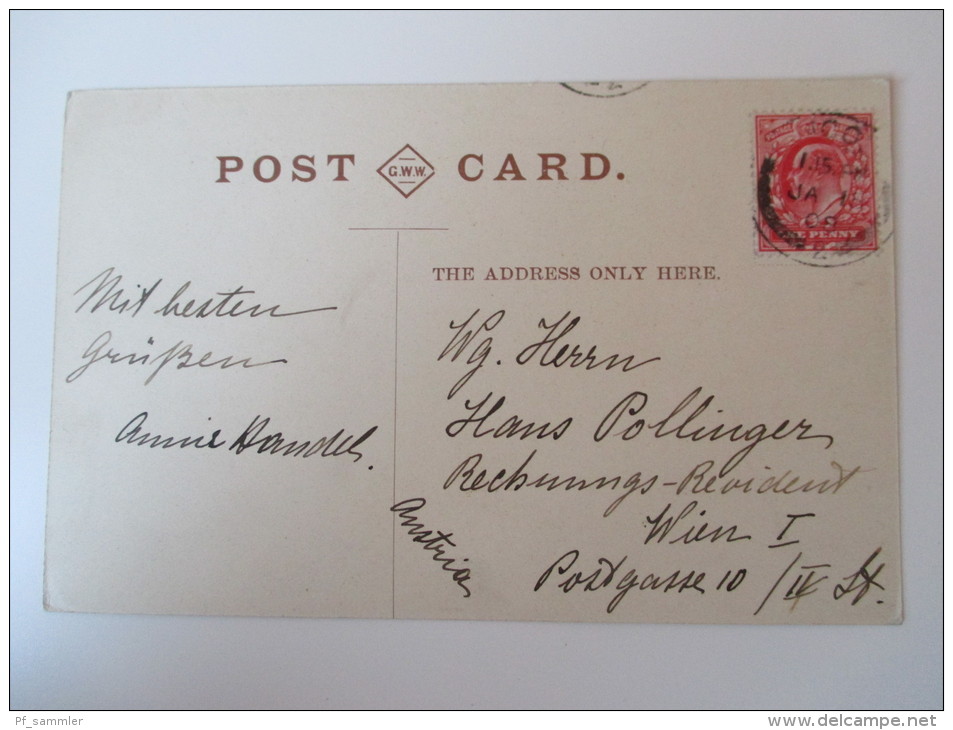 POST G.W.W. CARD.
JA 1
ONE PENNY
THE ADDRESS ONLY HERE.
Mit besten
Grüßen
Annie Handel.
Wg. Herrn
Hans Pollinger
Rechnungs-Revident
Wien I
Postgasse 10 / St.
Austria
Pf_sammler
www.delcampe.net